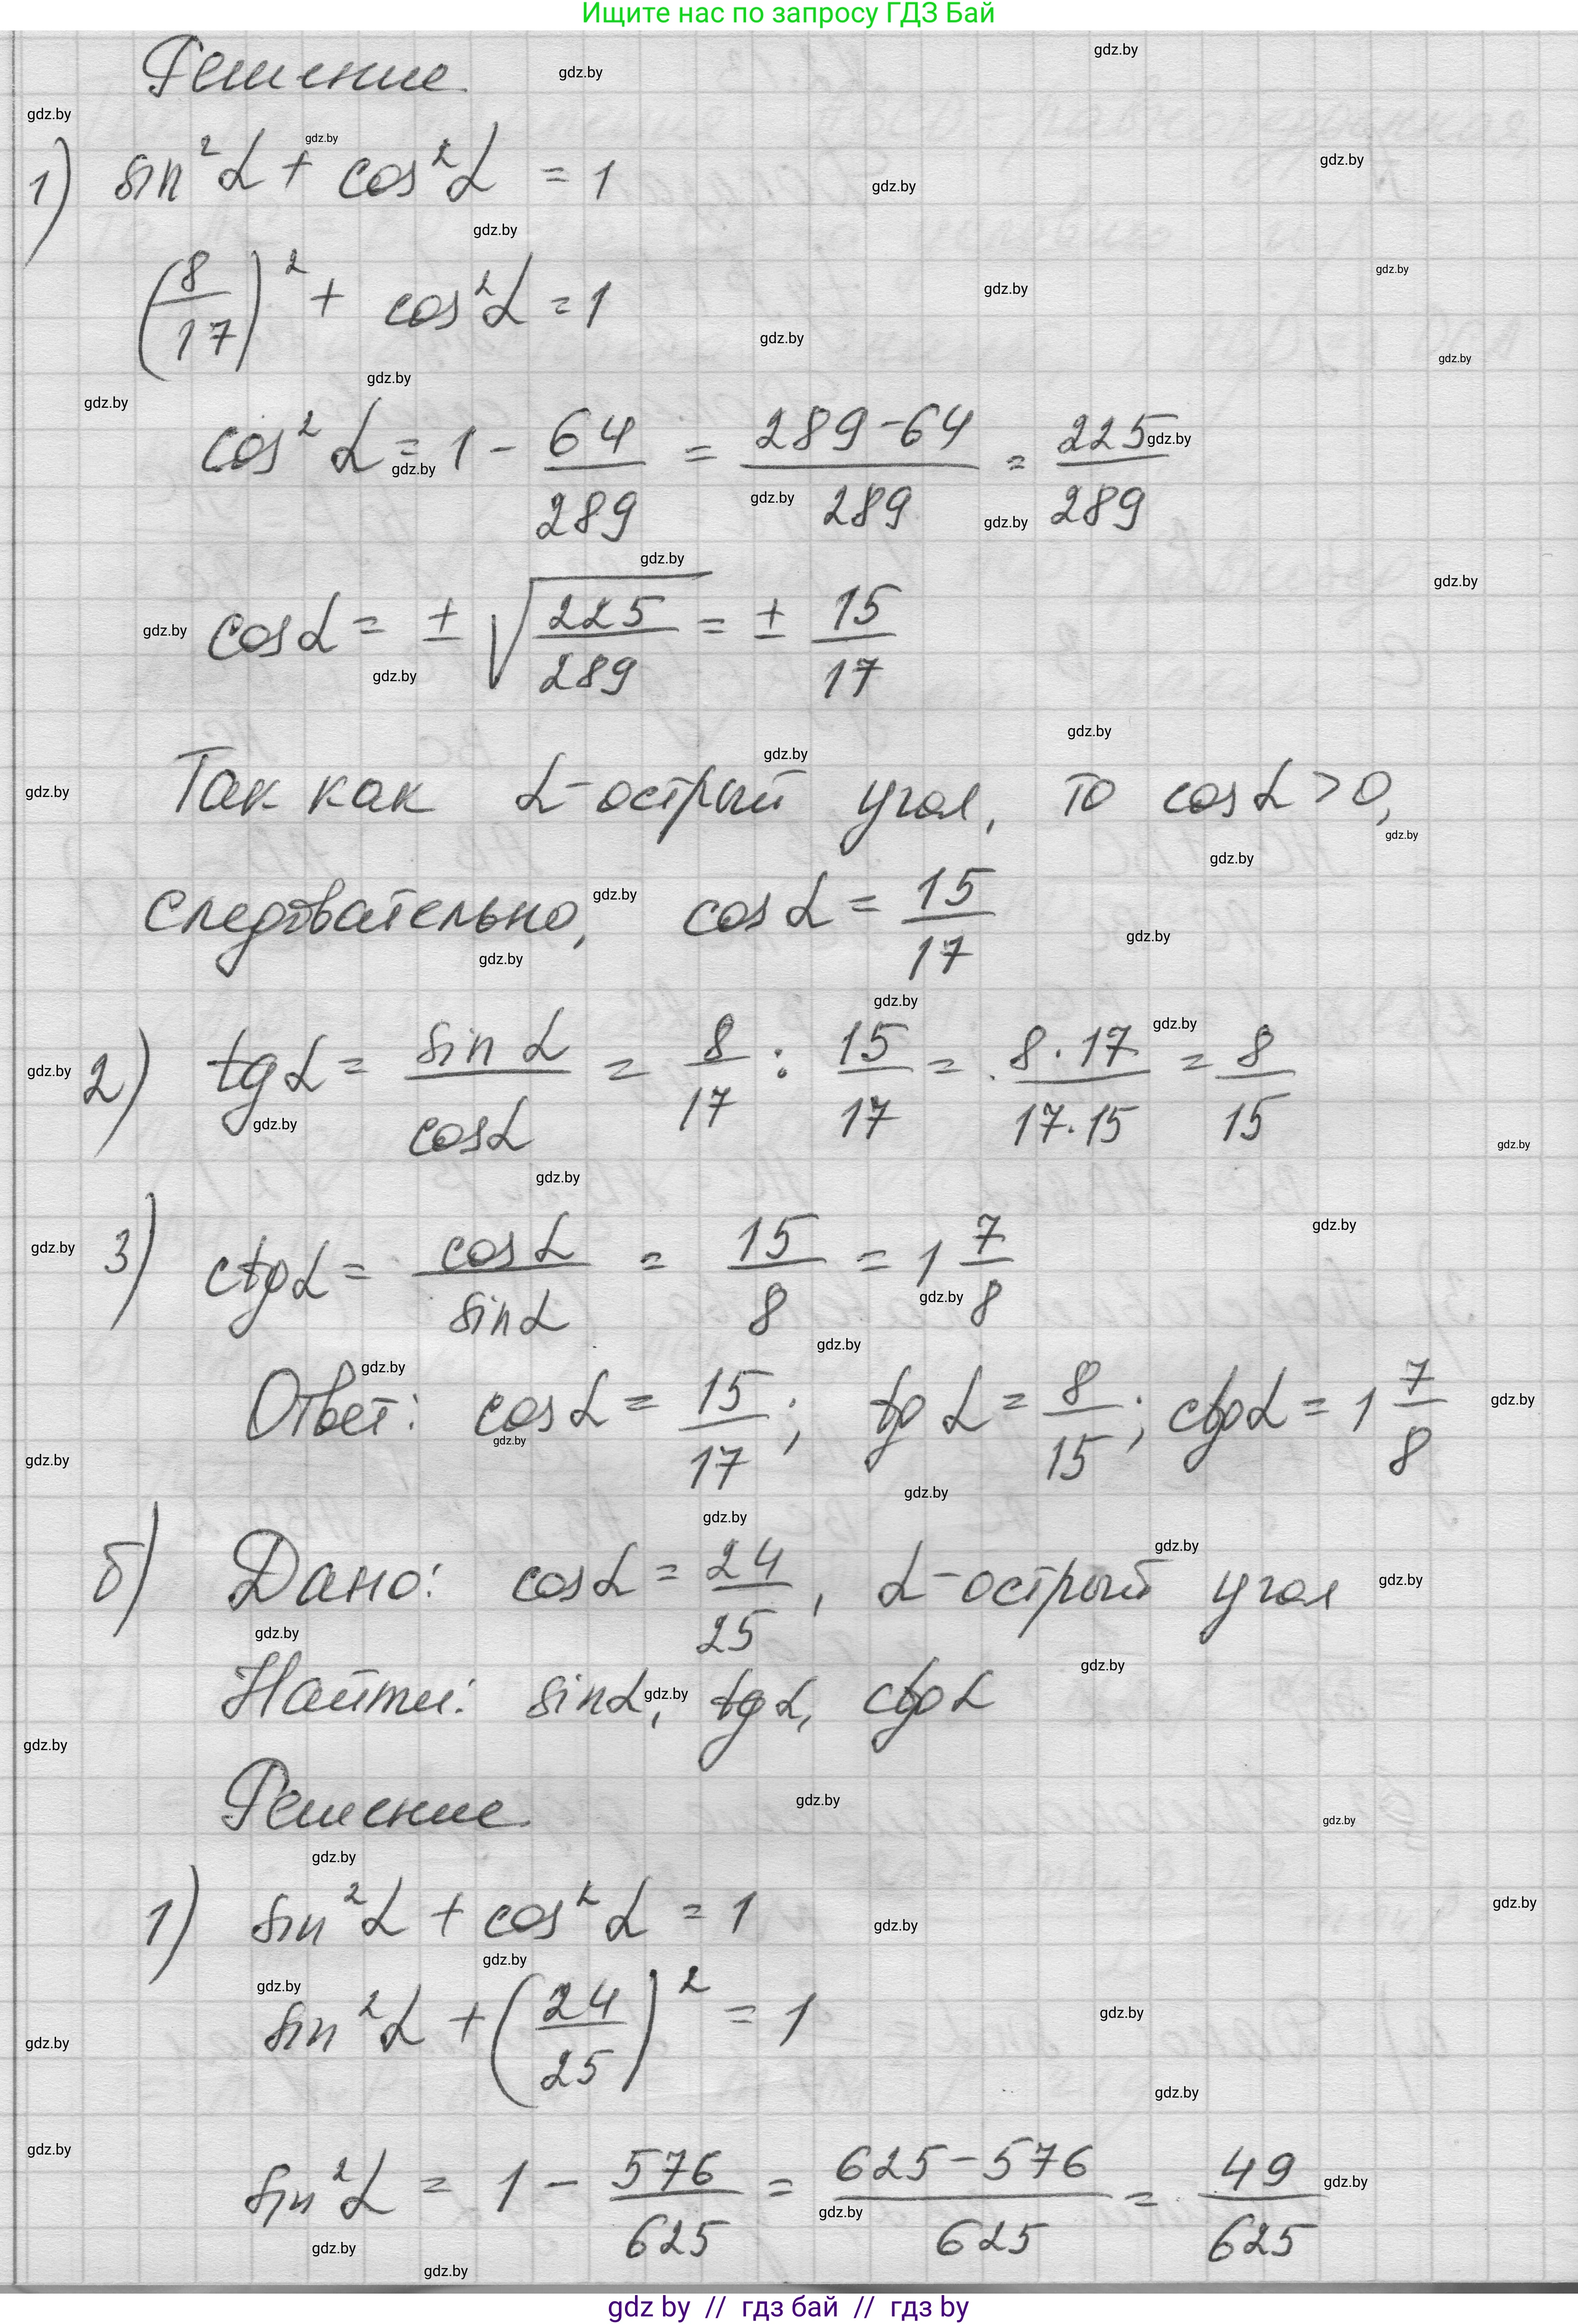 Ищите нас по запросу ГДЗ Бай
Решение
1) sin²α + cos²α = 1
(8/17)² + cos²α = 1
cos²α = 1 - 64/289 = (289-64)/289 = 225/289
cosα = ± √(225/289) = ± 15/17
Так как α-острый угол, то cosα > 0,
следовательно, cosα = 15/17
2) tgα = sinα/cosα = 8/17 : 15/17 = (8·17)/(17·15) = 8/15
3) ctgα = cosα/sinα = 15/8 = 1 7/8
Ответ: cosα = 15/17; tgα = 8/15; ctgα = 1 7/8
б) Дано: cosα = 24/25, α-острый угол
Найти: sinα, tgα, ctgα
Решение
1) sin²α + cos²α = 1
sin²α + (24/25)² = 1
sin²α = 1 - 576/625 = (625-576)/625 = 49/625
gdz by // гдз бай // гдз by